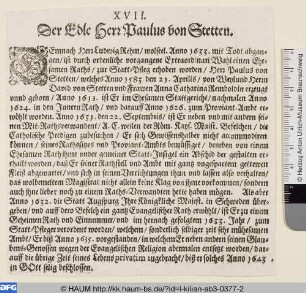 XVII.
Der Edle Herr Paulus von Stetten.
Demnach Herr Ludwig Rehm / wolsel. Anno 1633. mit Todt abgan-
gen / ist durch ordenliche vorgangne Extraordinari Wahl einen Ehr-
samen Raths / zur Statt-Pfleg erhoben worden / Herr Paulus von
Stetten / welches Anno 1583. den 23. Aprilis / von Weylund Herrn
David von Stetten und Frawen Anna Catharina Remboldin erzeugt
und gebohrn / Anno 1613. ist Er im Ehrsamen Stattgericht / nachmalen Anno
1624. in den Innern Rath / und darauf Anno 1626. zum Proviant-Ambt er-
wöhlt worden. Anno 1631. den 22. Septembris / ist Er neben und mit andern sei-
nen Mit-Rathsverwandten / A. C. weilen der Röm. Kays. Mayest. Befelchen / die
Catholische Predigen zubesuchen / Er sich Gewissenshalber nicht accommodiren
können / seines Rathsitzes und Proviant-Ambts bemüssiget / benebens von einem
Ehrsamen Rath
theilt worden / daß Er seiner Rathstell und Ambt mit gantz ungespartem getrewen
Fleiß abgewartet / und sich in seinen Verrichtungen
das wolbemelter Magistrat nicht allein kein Klag von ihme vorkommen / sondern
auch ihne lieber noch zu einem Raths-Verwandten hette haben mögen. Als aber
Anno 1632. die Statt Augspurg Ihre Königliche Mayest. in Schweden über-
geben / und auff dero Befelch ein gantz Evangelischer Rath erwöhlt / ist Er zu einem
Geheimen Rath und Einnemmer / und im hernach gefolgtem 1633. Jahr / zum
Statt-Pfleger verordnet worden / welchem / sonderlich selbiger zeit sehr mühsamen
Ambt / Er biß Anno 1635. vorgestanden / in welchem Er neben andern seinen Glau-
bens-Genossen wegen der Evangelischen Religion abermalen entsetzt worden / dar-
auff die übrige Zeit seines Lebens privatim zugebracht / biß er solches Anno 1643.
in GOtt selig beschlossen.
Herzog Anton Ulrich-Museum Braunschweig
© HAUM http://kk.haum-bs.de/?id=l-kilian-ab3-0377-2